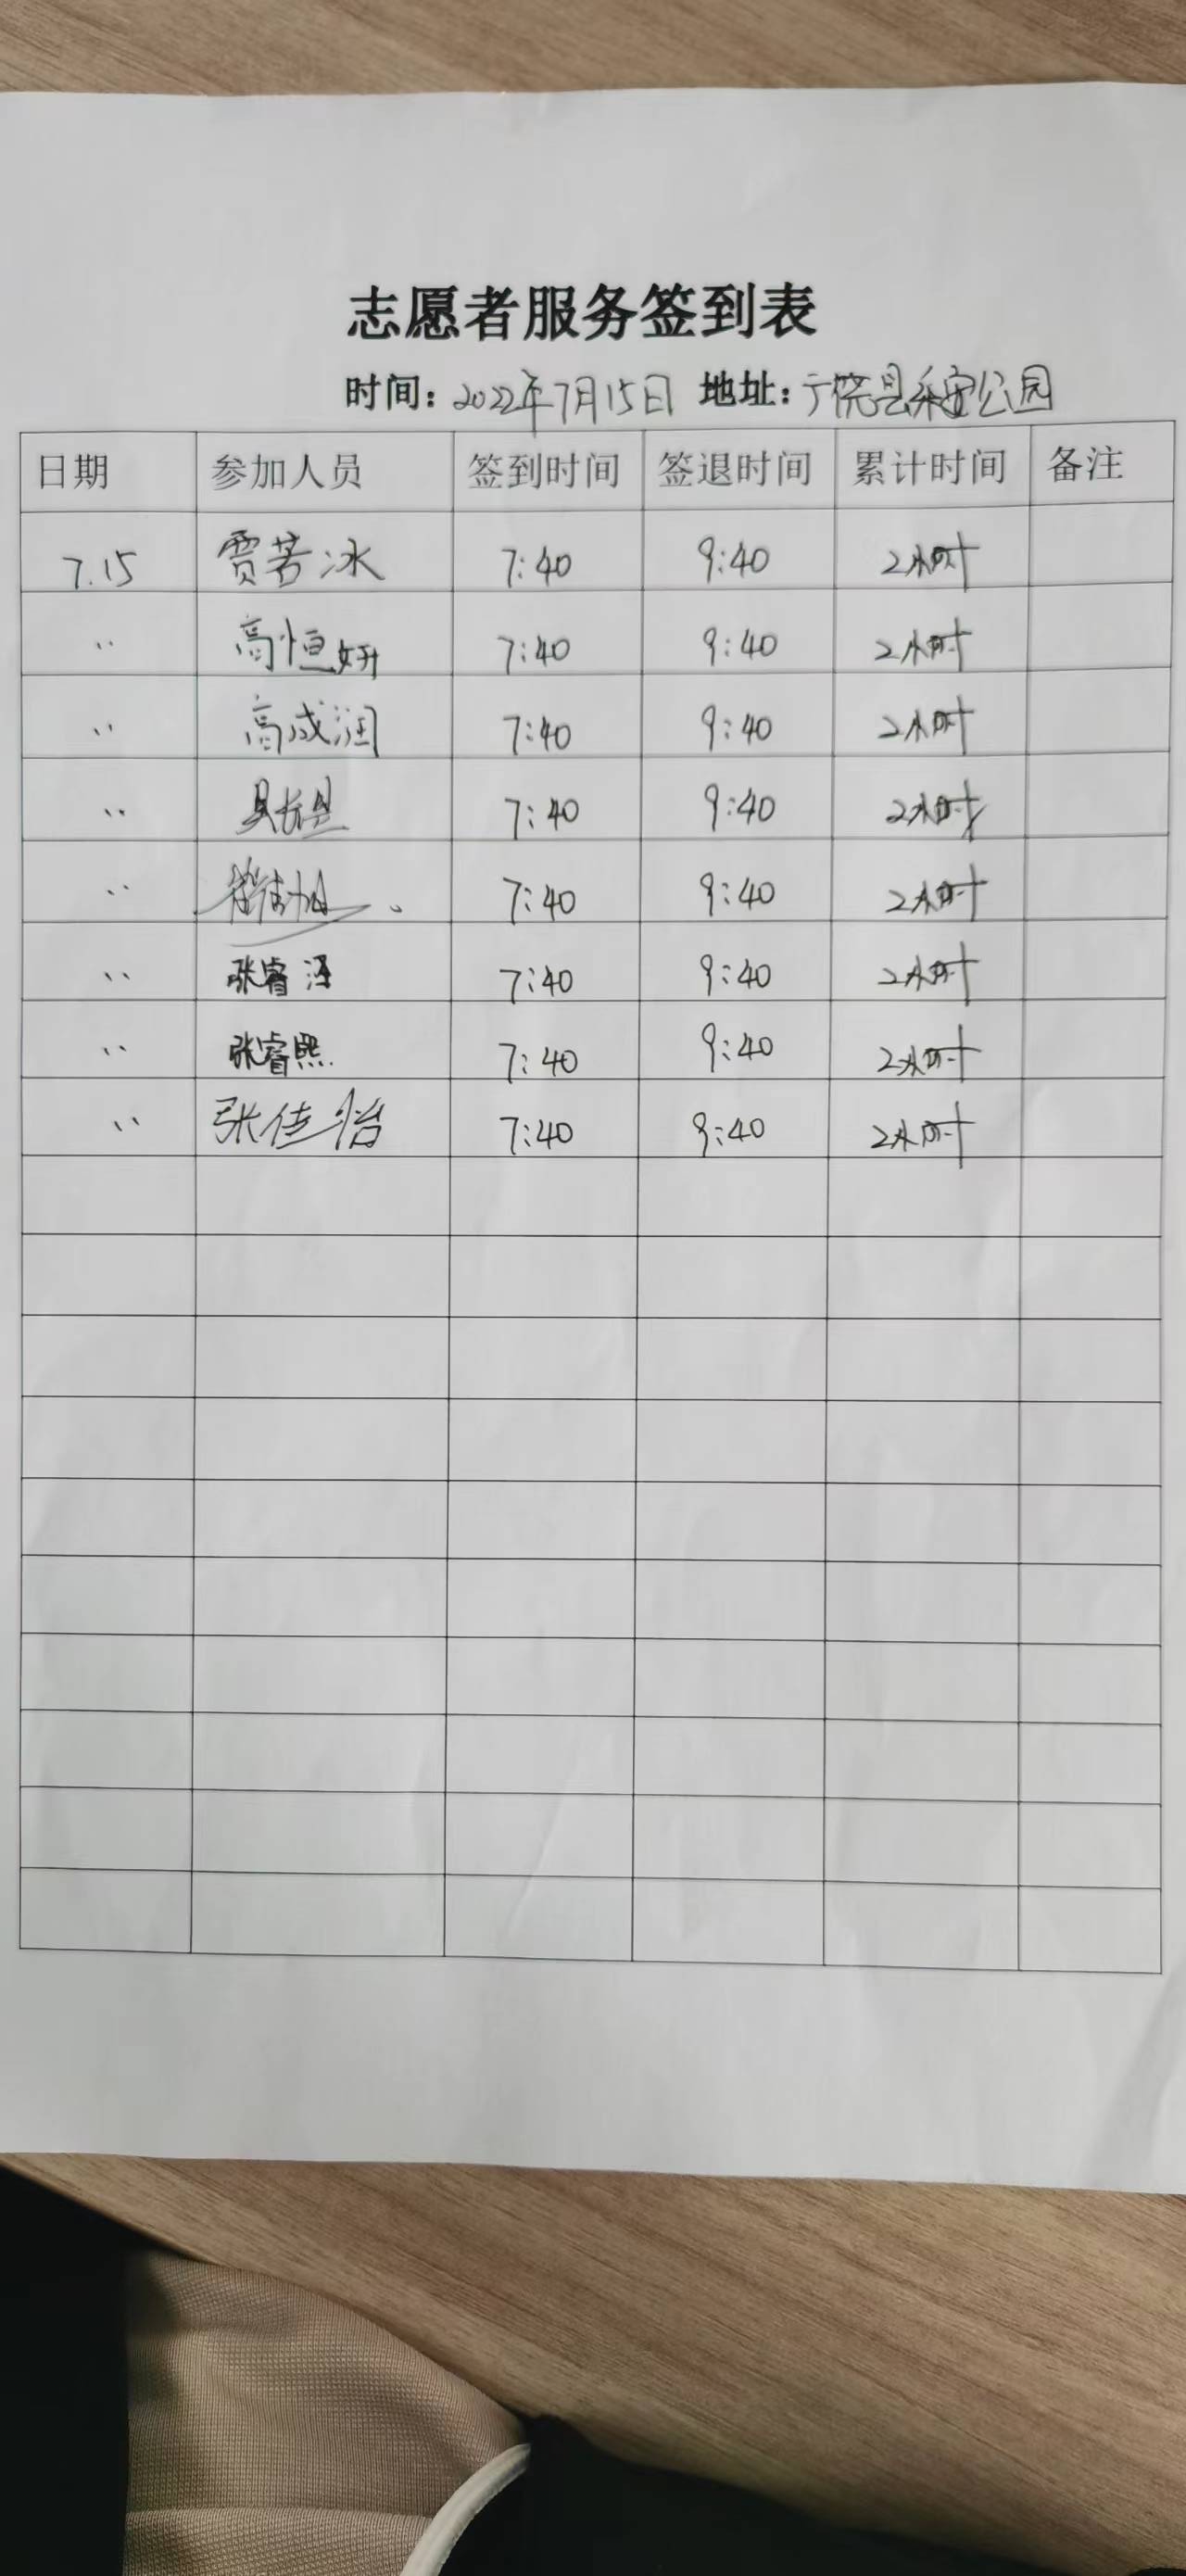 志愿者服务签到表
时间：2022年7月15日 地址：广饶县乐安公园
日期 参加人员 签到时间 签退时间 累计时间 备注
7.15 贾若冰 7:40 9:40 2小时
〃 高恒妍 7:40 9:40 2小时
〃 高成润 7:40 9:40 2小时
〃 7:40 9:40 2小时
〃 7:40 9:40 2小时
〃 张睿泽 7:40 9:40 2小时
〃 张睿熙 7:40 9:40 2小时
〃 张佳怡 7:40 9:40 2小时